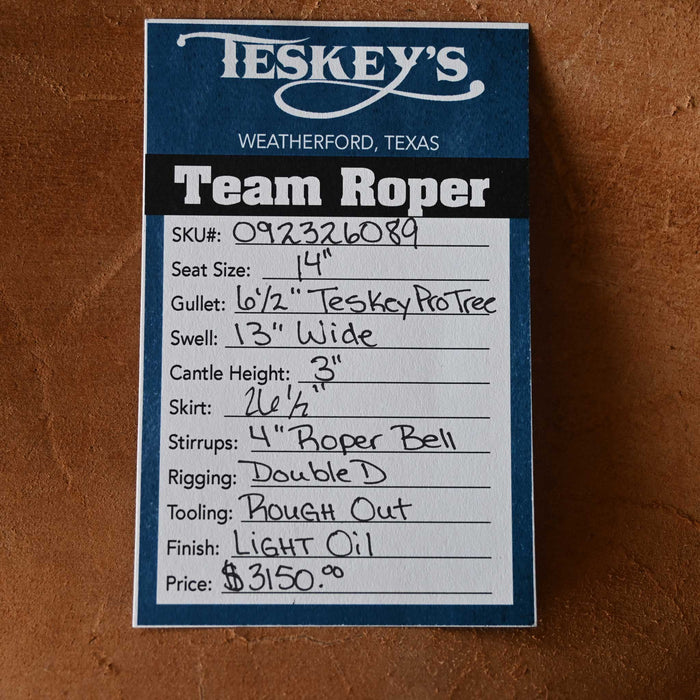 TESKEY'S
WEATHERFORD, TEXAS
Team Roper
SKU#: 092326089
Seat Size: 14"
Gullet: 6 1/2" Teskey Pro Tree
Swell: 13" Wide
Cantle Height: 3"
Skirt: 26 1/2"
Stirrups: 4" Roper Bell
Rigging: Double D
Tooling: ROUGH OUT
Finish: LIGHT Oil
Price: $3150.00